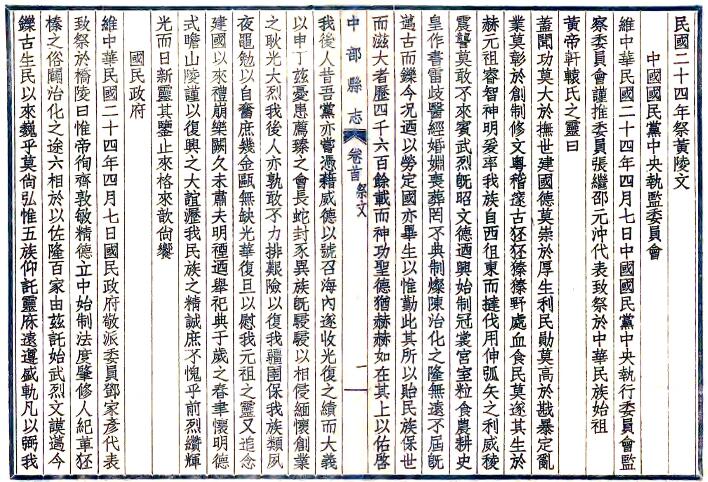 民國二十四年祭黃陵文
中國國民黨中央執監委員會
維中華民國二十四年四月七日中國國民黨中央執行委員會監
察委員會謹推委員張繼邵元沖代表致祭於中華民族始祖
黃帝軒轅氏之靈曰
蓋聞功莫大於撫世建國德莫崇於厚生利民勛莫高於戡暴定亂
業莫彰於創制修文粵稽邃古狉狉獉獉野處血食民莫遂其生於
赫元祖睿智神明爰率我族自西徂東而撻伐用伸弧矢之利威稜
震讋莫敢不來賓武烈旣昭文德迺興始制冠裳宮室粒食農耕史
皇作書雷歧醫經婚媾喪葬罔不典制燦陳治化之隆無遠不屆旣
邁古而鑠今況迺以勞定國亦畢生以惟勤此其所以貽民族保世
而滋大者歷四千六百餘載而神功聖德猶赫赫如在其上以佑啓
中部縣志
卷首祭文
一
我後人昔吾黨亦嘗憑藉威德以號召海內遂收光復之績而大義
以申丁茲憂患薦臻之會長蛇封豕異族旣駸駸以相侵緬懷創業
之耿光大烈我後人亦孰敢不力排艱險以復我疆圉保我族類夙
夜黽勉以自奮庶幾金甌無缺光華復旦以慰我元祖之靈又追念
建國以來禮崩樂闕久未肅夫明禋迺舉祀典于歲之春聿懷明德
式瞻山陵謹以復興之大誼瀝我民族之精誠庶不愧乎前烈纘輝
光而日新靈其鑒止來格來歆尙饗
國民政府
維中華民國二十四年四月七日國民政府敬派委員鄧家彥代表
致祭於橋陵曰惟帝徇齊敦敏精德立中始制法度肇修人紀革狉
榛之俗闢治化之途六相於以佐隆百家由茲託始武烈文謨邁今
鑠古生民以來巍乎莫尙弘惟五族仰託靈庥遠遵盛軌凡以弼我